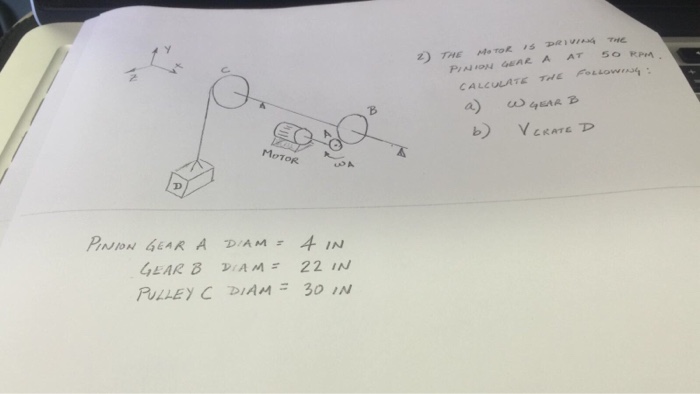 2) THE MOTOR IS DRIVING THE
PINION GEAR A AT 50 RPM.
CALCULATE THE FOLLOWING:
a) ω GEAR B
b) V CRATE D
Y
X
Z
C
B
A
MOTOR
ωA
D
PINION GEAR A DIAM = 4 IN
GEAR B DIAM = 22 IN
PULLEY C DIAM = 30 IN